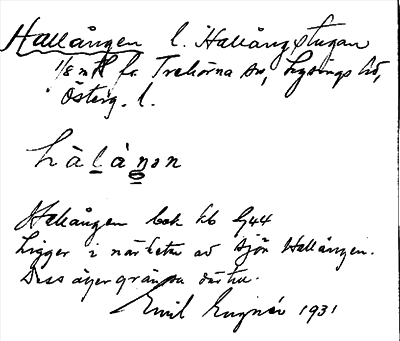 Hallången l. Hallångstugan
1/8 mtl fr Trehörna sn, Lysings hd,
Österg. l.
hàláŋən
Hallången bok kb G44
Ligger i närheten av sjön Hallången.
Dess ägor gränsa därtill.
Emil Lugnér 1931